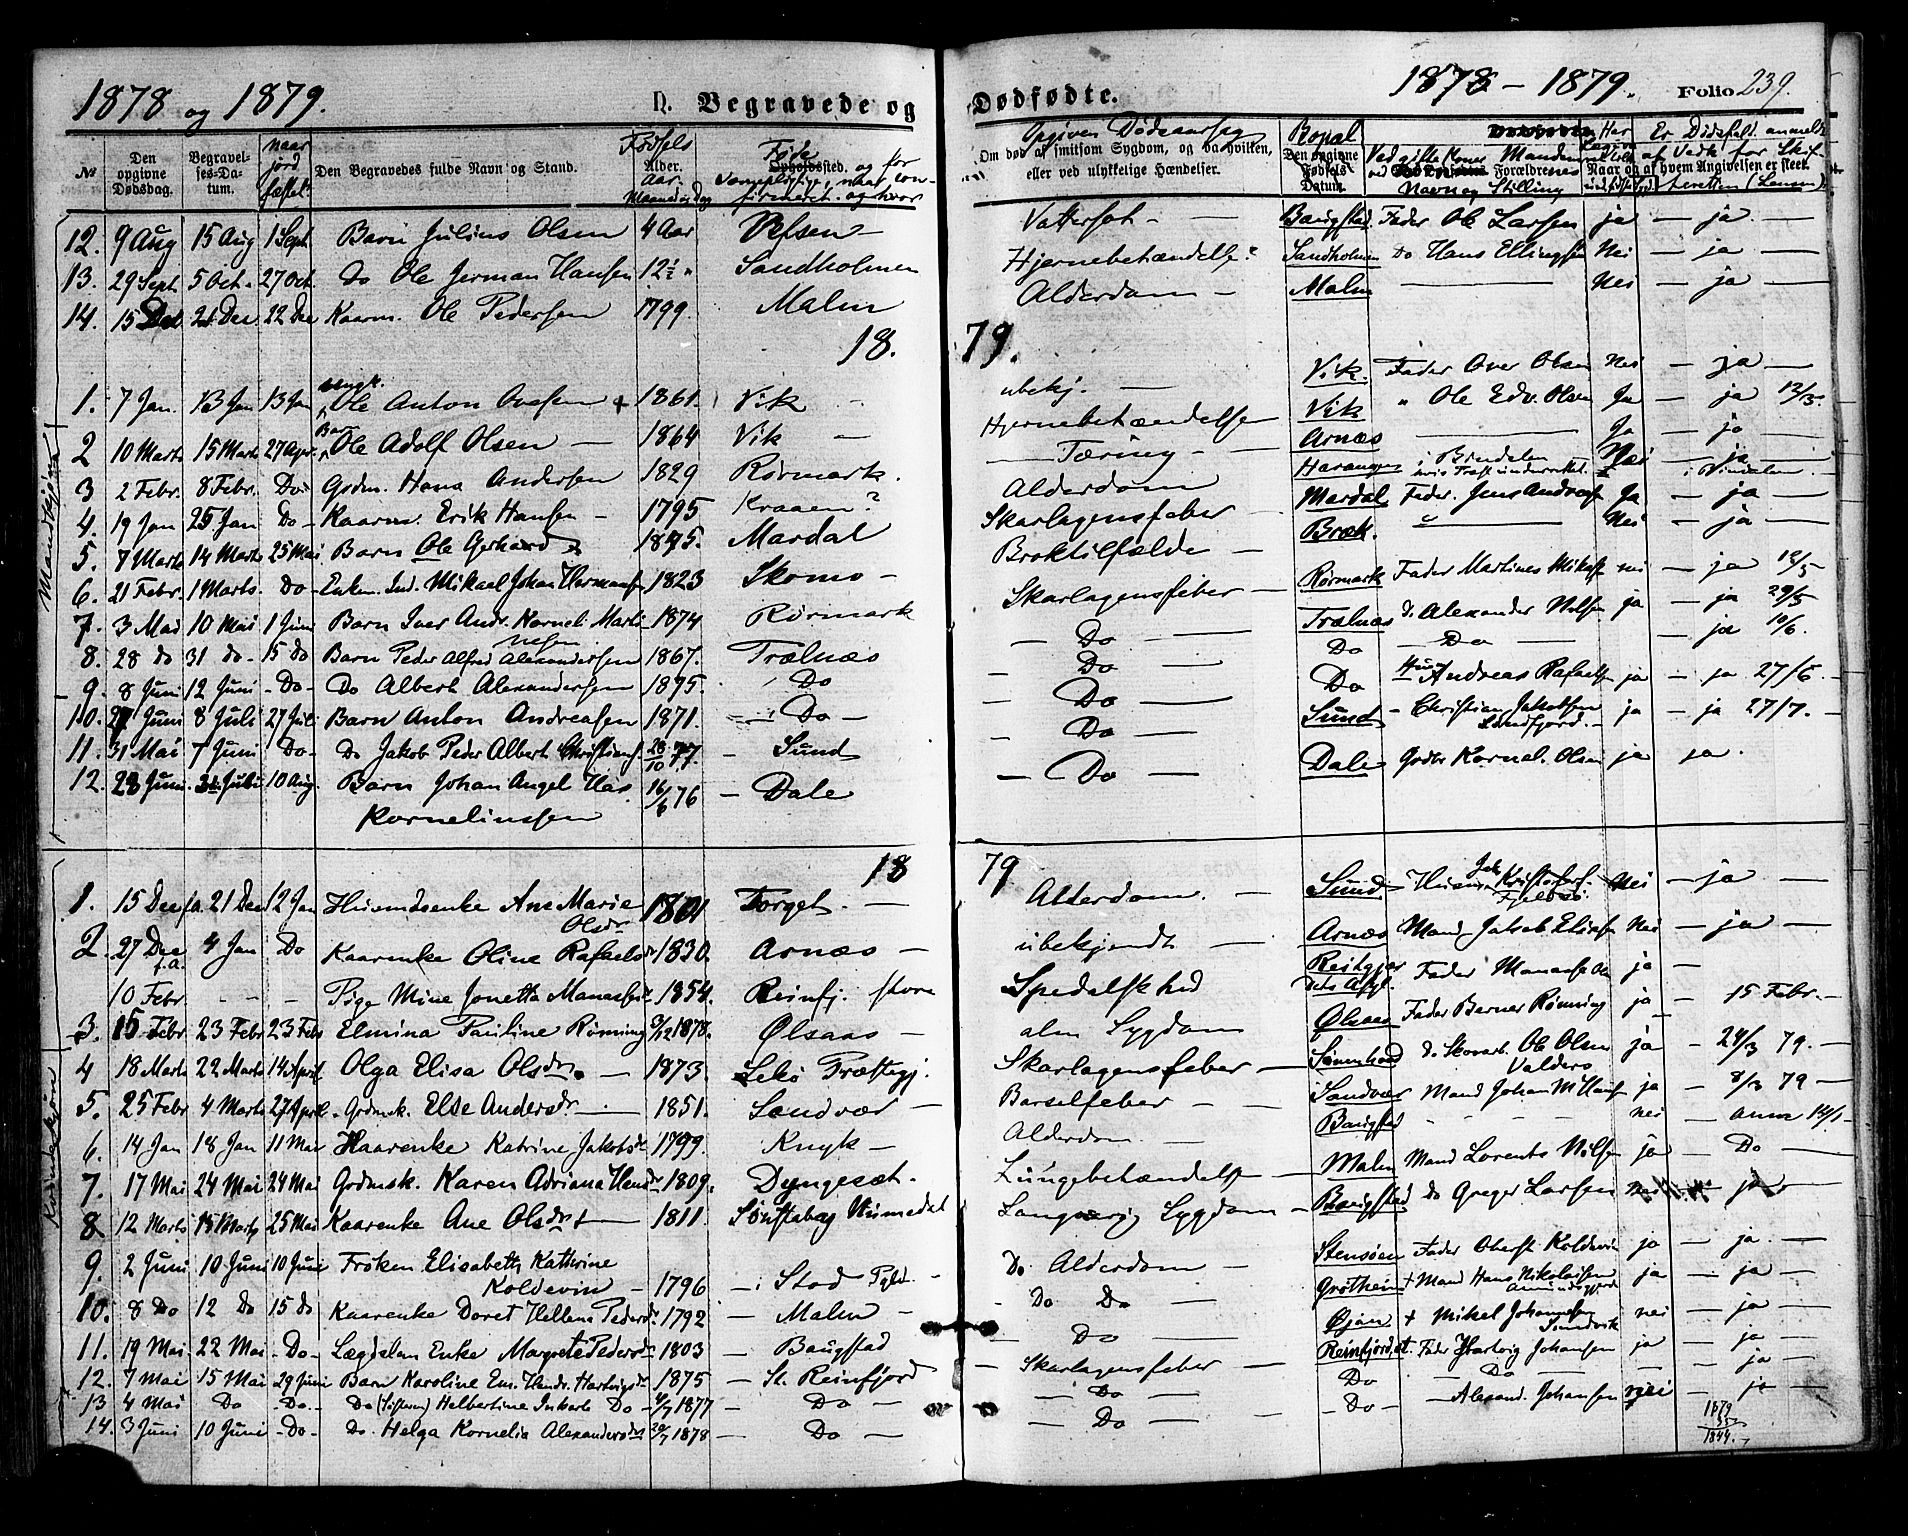 1878 og 1879. D. Begravede og Dødfødte. 1878 - 1879. Folio 239.
№ Den opgivne Dødsdag. Begravelses-Datum. naar jord fæstet Den Begravedes fulde Navn og Stand. Fødsels Alder. Aar. Føde og for
Opgiven Dødsaarsag Om død af smitsom Sygdom, og da hvilken, eller ved ulykkelige Hændelser. Bopal Den opgivne Fødsels Datum. Ved gifte Koner Mandens ved Forældrenes Navn og Stilling Er Dødsfald. anmeldt Naar og af hvem Angivelsen er skeet.
12. 9 Aug 15 Aug 1 Sept. Barn Julius Olsen 4 Aar Vefsen - Vattersot - Baugstad Fader Ole Larsen ja - ja
13. 29 Sept. 5 Oct. 27 Oct. Do Ole Jerman Hansen 12½ " Sandholmen Hjernebetændelse? Sandholmen Do Hans Ellingsen Nei - ja
14. 15 Dec Dec 22 Dec Kaarm. Ole Pedersen 1799. Malm Alderdom - Malm Nei - ja
18. 79.
1. 7 Jan. 13 Jan 13 Jan Ungk. Ole Anton Ovesen + 1861. Vik - ubekj. - Vik. Fader Over Olsen Nei - ja -
2 10 Marts 15 Marts 27 Apr. Barn Ole Adolf Olsen - 1864 Vik - Hjernebetændelse Vik " Ole Edv. Olsen Ja - ja 12/5.
3 2 Febr. 8 Febr. Do Gdm. Hans Andersen 1829 Rørmark. - Tæring - Arnæs Ja - ja
4. 19 Jan 25 Jan Do - Kaarm. Erik Hansen - 1795 Kraaen? Alderdom Harangen i Bindalen Nei - ja i Bindalen
5. 7 Marts 14 Marts 25 Mai Barn Ole Gerhard 1875. Mardal Skarlagensfeber - Mardal Fader. Jens Andreas Ja - ja -
6. 21 Febr. 1 Marts. Do - Enkem. Ind. Mikael Johan Hermansen 1823 Skomo - Broktilfælde - Bræk. " Nei - ja
7. 3 Mai 10 Mai 1 Juni Barn Iver Andr. Korneli. Martinesen 1874 Rørmark Skarlagensfeber - Rørmark Fader Martines Mikels nei - ja 12/5
8. 28 do 31 do. 15 Do Barn Peder Alfred Alexandersen 1867. Trælnæs - Do - Trælnæs d. Alexander Nilsen ja - ja 29/5
9. 8 Juni 12 Juni - Do - Do Albert Alexandersen 1875. Do Do Do - Do - - ja 10/6.
10. 27 Juni 8 Juli 27 Juli Barn Anton Andreasen 1871. - Do - Do - Do Andreas Rafaelsen ja - ja 27/6 -
11. 31 Mai 7 Juni Do - Do Jakob Peder Albert Christians. 28/10 77. - Sund - Do - Sund - Christian Jakobsen Sundfjord. - ja - ja 27/7. -
12. 28 Juni Juli 10 Aug. Barn Johan Angel Has Kornelinssen 16/6 76 - Dale - Do - Dale Kornel. Olsen ja ja.
18 79
1. 15 Dec f.a. 21 Dec 12 Jan Huusmdsenke Ane Marie Olsdr 1801 Torget. - Alderdom. - Sund Husm Kristofers. Fjeldsø. Nei - ja -
2. 27 Dec f.a. 4 Jan Do Kaarenke Oline Rafaelsdr 1830. Arnæs - ubekjendt - Arnæs Mand Jakob Eliasen Nei - ja -
10 Febr - - - Pige Mine Jonetta Manassesdr 1854. Reinfj. store Spedalskhed Reitgjær Fader Manasse ja -
3. 15 Febr 23 Febr 23 Febr Elmina Pauline Rønning 9/12 1878. Ølsaas - alm Sygdom Ølsaas Fader Berner Rønning ja - 15 Febr. -
4 18 Marts 22 Marts 14 April Olga Elisa Olsdr. - 1873. Lekø Præstegj. Skarlagensfeber - Sømnhovd d. Skovarb. Ole Olsen Valders ja - 24/3 79. -
5. 25 Febr 4 Marts 27 April Grdmsk. Else Andersdr - 1851. Sandvær - Barselfeber - Sandvær Mand Johan Nilsen ja - 8/3 79 -
6. 14 Jan 18 Jan 11 Mai Kaarenke Katrine Jakobsdr 1799. Knyk - Alderdom. - Baugstad nei - anm 14/1
7. 17 Mai 24 Mai 24 Mai Grdmsk. Karen Adriana Hansdr 1809. Dyngesæt. Lungebetændelse - Malm Mand Lorents Nilsen ja - Do
8 12 Marts 15 Marts 25 Mai Kaarenke Ane Olsdr 1811. Numedal Langvarig Sygdom - Baugstad do Greger Larsen nei - ja
9. 2 Juni 10 Juni 10 Juni Frøken Elisabeth Kathrine Koldevin - 1796 - i Stod Fgld. - Do. Alderdom - Stensøen Fader Oberst Koldevin ja - ja. -
10. 8 Do 12 Do 15 Do Kaarenke Doret Hellena Pedersdr 1792 - Malm - - Do Do - Grøtheim + Mand Hans Nikolaisen ja - ja -
11. 19 Mai 22 Mai - Do - Lægdslem Enke Margrete Pedersdr 1803 - Baugstad - Do - Øjan + Mikel Johannesen Sundvik nei - ja -
12. 7 Mai 15 Mai 29 Juni Barn Karoline Em. Hendr. Hartvigsdr 1875 - St. Reinfjord - Skarlagensfeber - Reinfjord st. Fader Hartvig Johansen ja - ja
13 4 Mai Do - Do - Do (Tvilling) Helbertine Do - 1877 - Do - - Do - Do - Do - - ja
14. 3 Juni 10 Juni - Do - Do. Helga Kornelia Alexandersdr 20/7 1878 - Do - - Do - - Do - - Alexand. Johansen nei - ja -
1879
35
1844.
Mandkjøn
Kvindekjøn